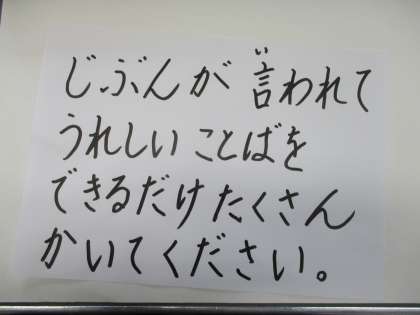 じぶんが言われて
うれしいことばを
できるだけたくさん
かいてください。